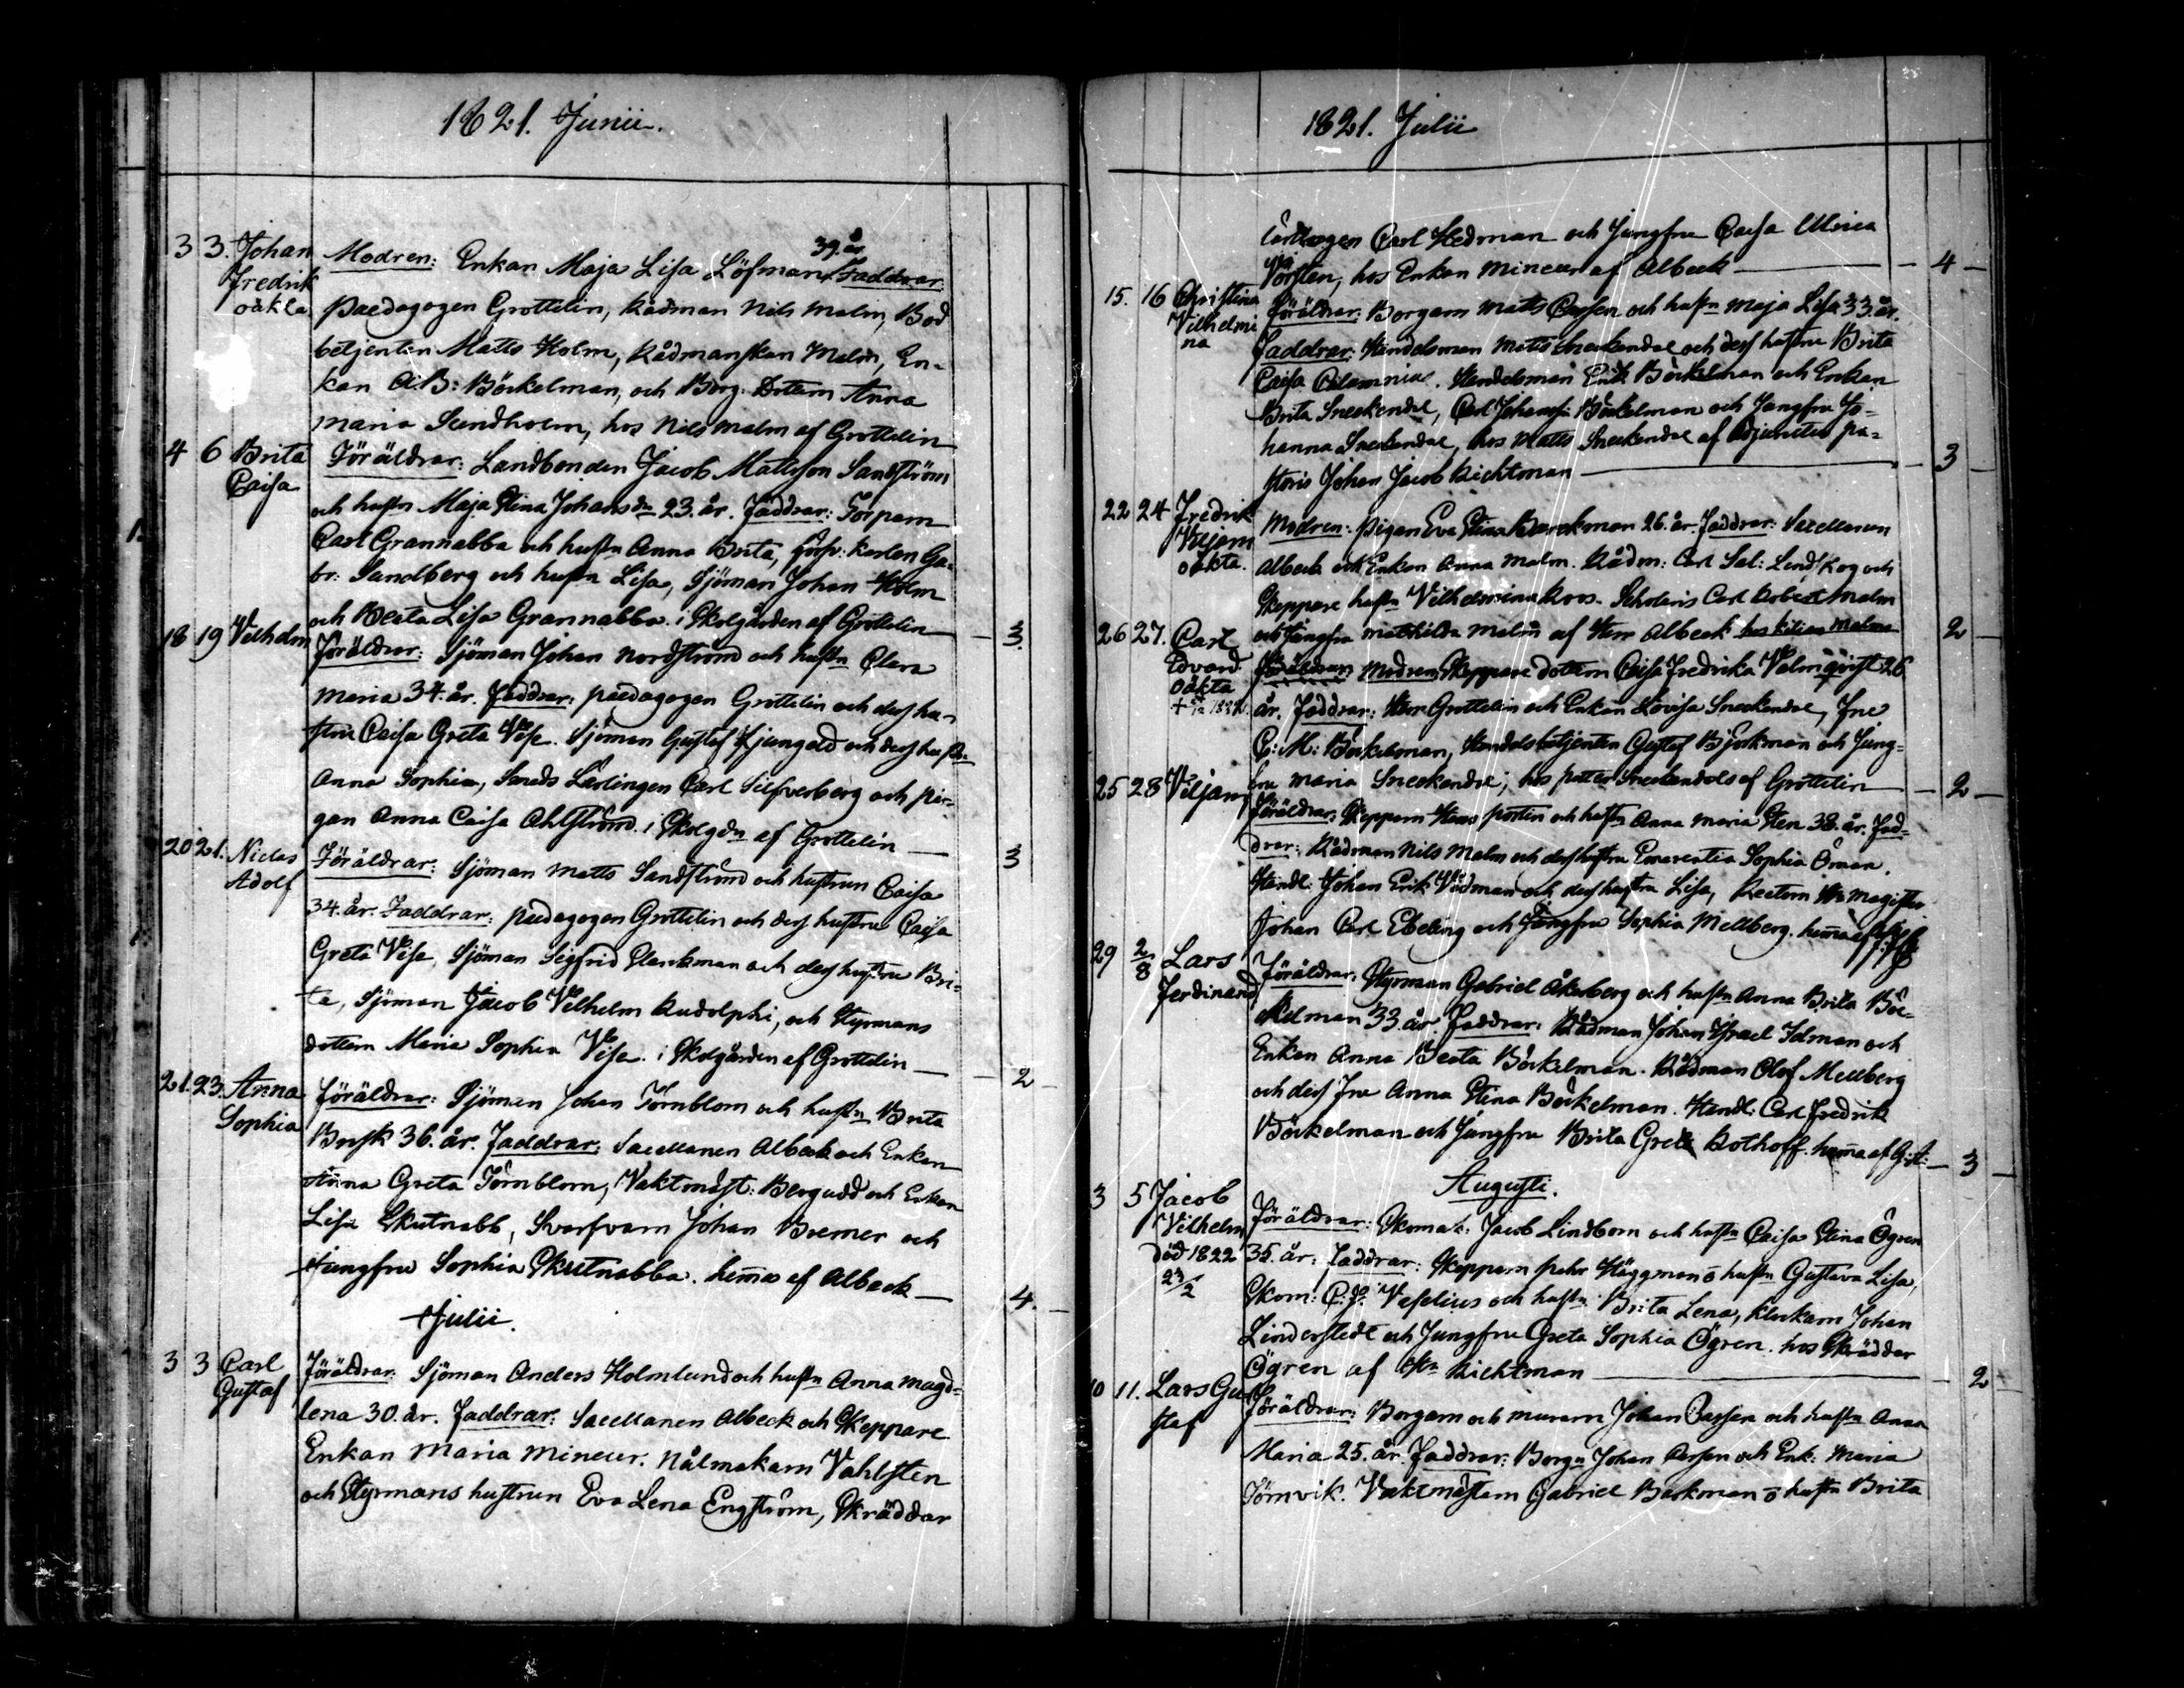 1821. Junii.
3 3. Johan Fredrik oäkta
Modren: Enkan Maja Lisa Löfman 39. år Faddrar
Paedagogen Grottelin, Rådman Nils Malm, Bod
betjenten Matts Holm, Rådmanskan Malm, En-
kan A:B: Böckelman, och Borg. Dottern Anna
Maria Sundholm, hos Nils Malm af Grottelin
4 6 Brita Caisa
Föräldrar: Landbonden Jacob Mattsson Sandström
och hustn Maja Stina Johansdr 23. år. Faddrar: Torparn
Carl Grannabba och hustn Anna Brita, karlen Ga-
br: Sandberg och hustn Lisa, Sjöman Johan Holm
och Beata Lisa Grannabba. i Skolgården af Grottelin 3.
18 19 Vilhelm
Föräldrar: Sjöman Johan Nordström och hustn Clara
Maria 34. år. Faddrar: paedagogen Grottelin och dess hu-
stru Caisa Greta Vise. Sjöman Gustaf Ljungald och dess hustn
Anna Sophia, Smeds Lärlingen Carl Silfverberg och pi-
gan Anna Caisa Ahlström. i Skolgdn af Grottelin 3
20 21. Niclas Adolf
Föräldrar: Sjöman Matts Sandström och hustrun Caisa
34. år. Faddrar: paedagogen Grottelin och dess hustru Caisa
Greta Vise, Sjöman Sigfrid Clenkman och dess hustru Bri-
ta, Sjöman Jacob Vilhelm Rudolphi, och Styrmans
dottern Maria Sophia Vise. i Skolgården af Grottelin 2
21. 23. Anna Sophia
Föräldrar: Sjöman Johan Törnblom och hustn Brita
Busk 36. år. Faddrar: Sacellanen Albeck och Enkan
Anna Greta Törnblom, Vaktmäst: Bergudd och Enkan
Lisa Skutnabb, Svarfvarn Johan Bremer och
Jungfru Sophia Skutnabba. hema af Albeck 4.
Julii.
3 3 Carl Gustaf
Föräldrar: Sjöman Anders Holmlund och hustn Anna Magd-
lena 30. år. Faddrar: Sacellanen Albeck och Skeppare
Enkan Maria Mineur. Nålmakarn Vahlsten
och Styrmans hustrun Eva Lena Engström, Skräddar
1821. Julii
Lärlingen Carl Hedman och Jungfru Caisa Ulrica
hos Enkan Mineur af Albeck 4
15. 16 Christina Vilhelmina
Föräldrar: Borgarn Matts Classen och hustn Maja Lisa 33. år.
Faddrar: Handelsman Matts Sneckendal och dess hustru Brita
Caisa Calamnia. Handelsman Erik Böckelman och Enkan
Brita Sneckendal, Carl Johans: Böckelman och Jungfru Jo-
hanna Sneckendal, hos Matts Sneckendal af Adjunctus pa-
storis Johan Jacob Richtman 3
22 24 Fredrik oäkta.
Modren: Pigan Eva Stina 26. år. Faddrar: Sacellanen
Albeck och Enkan Anna Malm. Rådm: Carl Sal: Lindskog och
Skeppare hustn Vilhelmina Roos. Scholaris Carl Robert Malm
och Jungfru Mathilda Malm af Herr Albeck hos Malms 2
26 27. Carl Edvard Oäkta
Föräldrar: Modren Skeppare dottern Caisa Fredrika Valmqvist 26
år. Faddrar: Herr Grottelin och Enkan Lovisa Sneckendal, Fru
C: M: Böckelman, Handelsbetjenten Gustaf Björkman och Jung-
fru Maria Sneckendal; hos Petter Sneckendals af Grottelin 2
25 28 Viljam
Föräldrar: Skepparn Hans Portin och hustn Anna Maria Sten 38. år. Fad-
drar: Rådman Nils Malm och dess hustru Emerentia Sophia Öman.
Handl: Johan Erik Vädman och dess hustru Lisa, Rectorn Hr Magister
Johan Carl Ebeling och Jungfru Sophia Mellberg. hema af
29 2/8 Lars Ferdinand
Föräldrar: Styrman Gabriel Åkerberg och hustn Anna Brita Böc-
kelman 33 år. Faddrar: Rådman Johan Israel Idman och
Enkan Anna Beata Böckelman. Rådman Olof Mellberg
och dess Fru Anna Stina Böckelman. Handl: Carl Fredrik
Böckelman och Jungfru Brita Greta Rothoff. hema af G:A: 3
Augusti.
3 5 Jacob Vilhelm död 1822 23/2
Föräldrar: Skomak: Jacob Lindbom och hustn Caisa Stina Ögren
35. år. Faddrar: Skepparn Pehr Häggman o hustn Gustava Lisa,
Skom: C: J: Veselius och hustn Brita Lena, Klockarn Johan
Linderstedt och Jungfru Greta Sophia Ögren. hos Skräddar
Ögren af Richtman 2
10 11. Lars Gustaf
Föräldrar: Borgarn och murarn Johan Classen och hustn Anna
Maria 25. år. Faddrar: Borgn Johan Classen och Enk: Maria
Törnvik. Vaktmästarn Gabriel Backman o hustn Brita